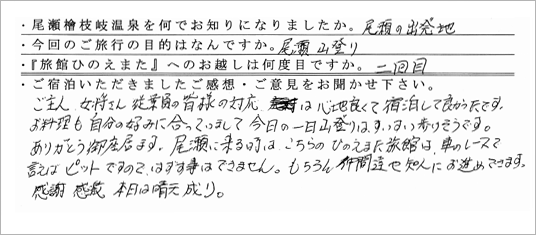 ・尾瀬檜枝岐温泉を何でお知りになりましたか。尾瀬の出発地
・今回のご旅行の目的はなんですか。尾瀬 山登り
・『旅館ひのえまた』へのお越しは何度目ですか。二回目
・ご宿泊いただきましたご感想・ご意見をお聞かせ下さい。
ご主人 女将さん 従業員の皆様の対応 は心地良くて宿泊して良かったです。
お料理も自分の好みに合っていまして今日の一日山登りはすいすい歩けそうです。
ありがとう御座居ます。尾瀬に来る時は こちらのひのえまた旅館は、車のレースで
言えばピットですので、はずす事はできません。もちろん 仲間達や知人にお進めできます。
感謝 感激 本日は晴天成り。